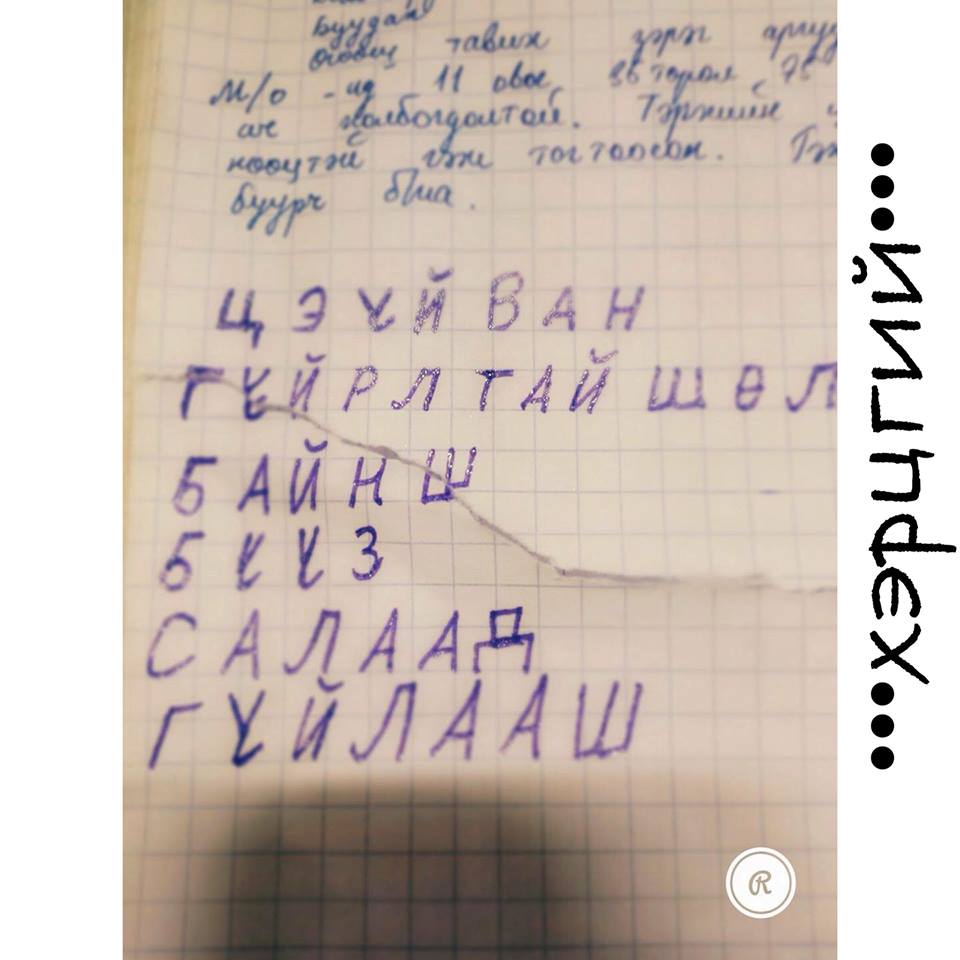 Буудай
тавих зэрэг
М/о - ид 11 овог, 36 төрөл 75
холбогдолтой. Тэржийн
нөөцтэй гэж тогтоосон. Гэ
буурч б/на.
ЦЭҮЙВАН
ГҮЙРЛТАЙ ШӨЛ
БАЙНШ
БҮҮЗ
САЛААД
ГҮЙЛААШ
...ХЭРЦГИЙ....
R